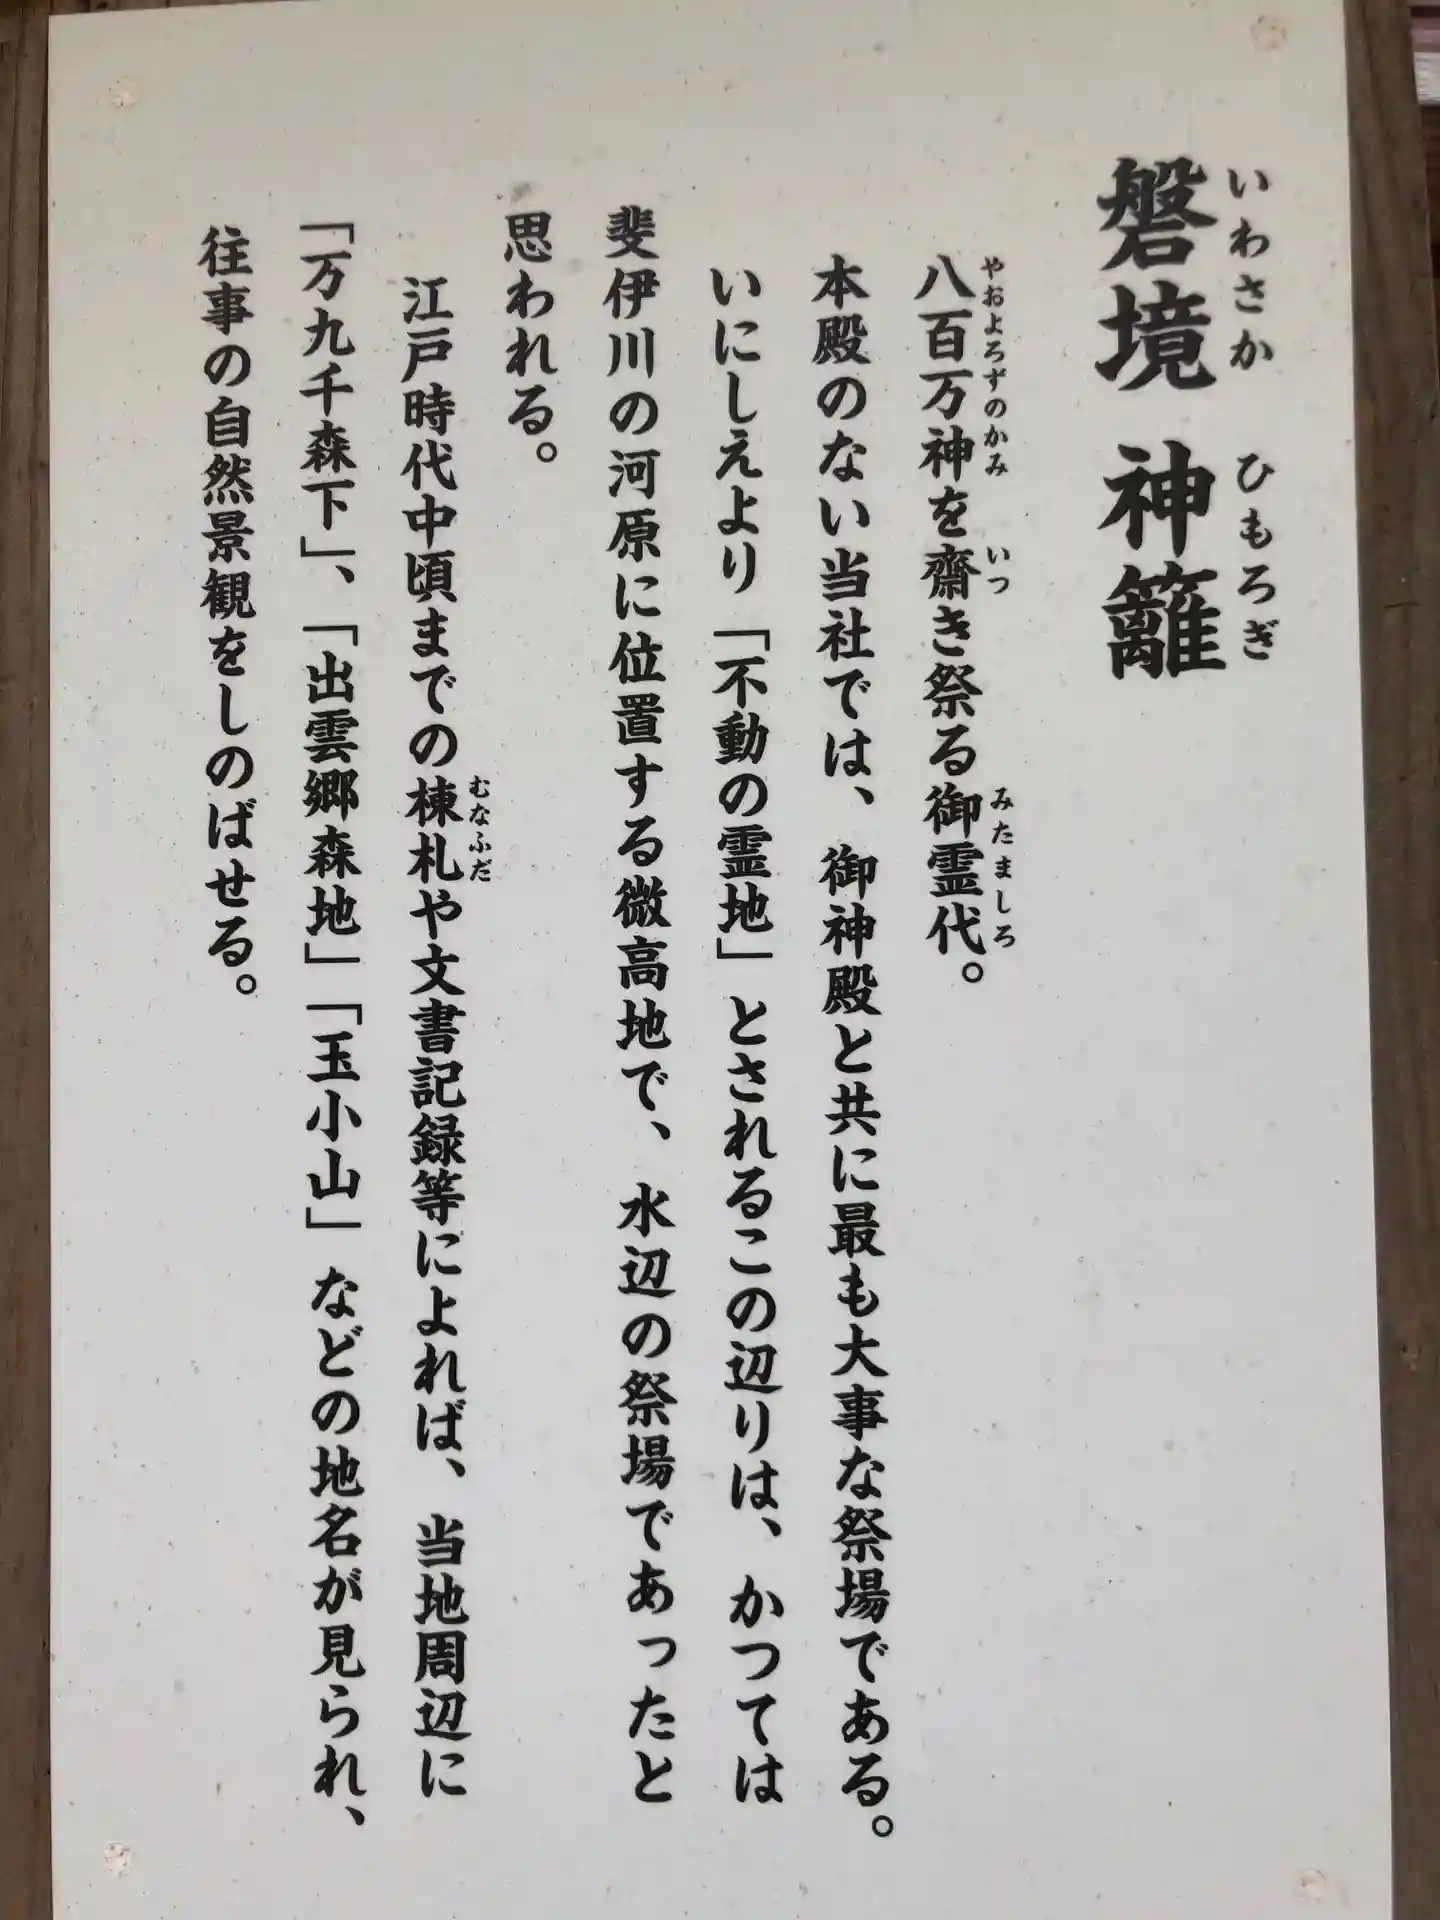 磐境 神籬
いわさか ひもろぎ
八百万神を齋き祭る御霊代。
やおよろずのかみ いつ みたましろ
本殿のない当社では、御神殿と共に最も大事な祭場である。
いにしえより「不動の霊地」とされるこの辺りは、かつては
斐伊川の河原に位置する微高地で、水辺の祭場であったと
思われる。
江戸時代中頃までの棟札や文書記録等によれば、当地周辺に
むなふだ
「万九千森下」、「出雲郷森地」「玉小山」などの地名が見られ、
往事の自然景観をしのばせる。